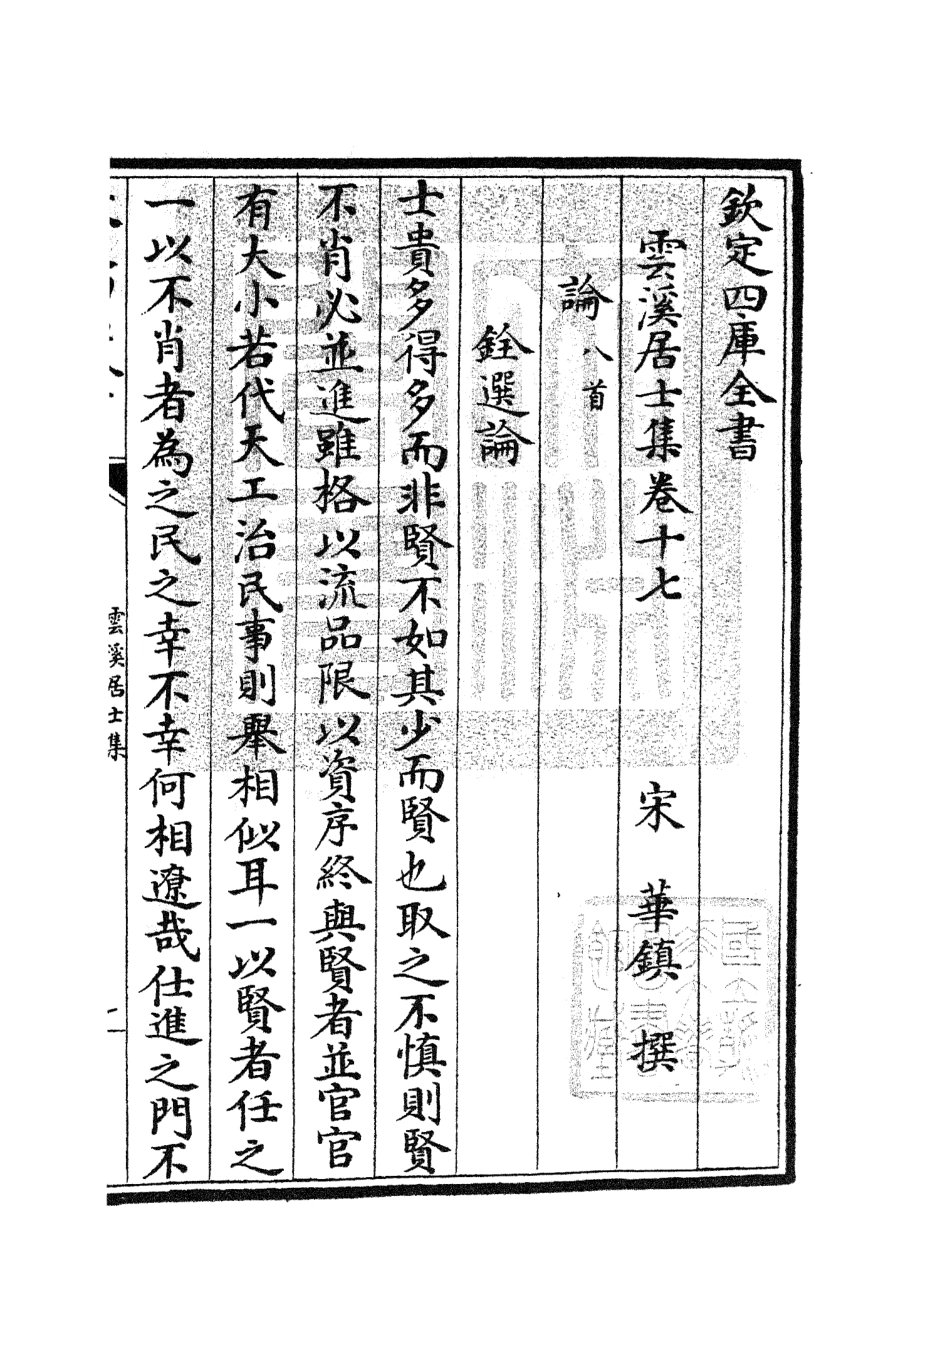 欽定四庫全書
雲溪居士集卷十七
宋　華鎮　撰
論八首
銓選論
士貴多得多而非賢不如其少而賢也取之不慎則賢
不肖必並進雖格以流品限以資序終與賢者並官官
有大小若代天工治民事則舉相似耳一以賢者任之
一以不肖者為之民之幸不幸何相遼哉仕進之門不
雲溪居士集